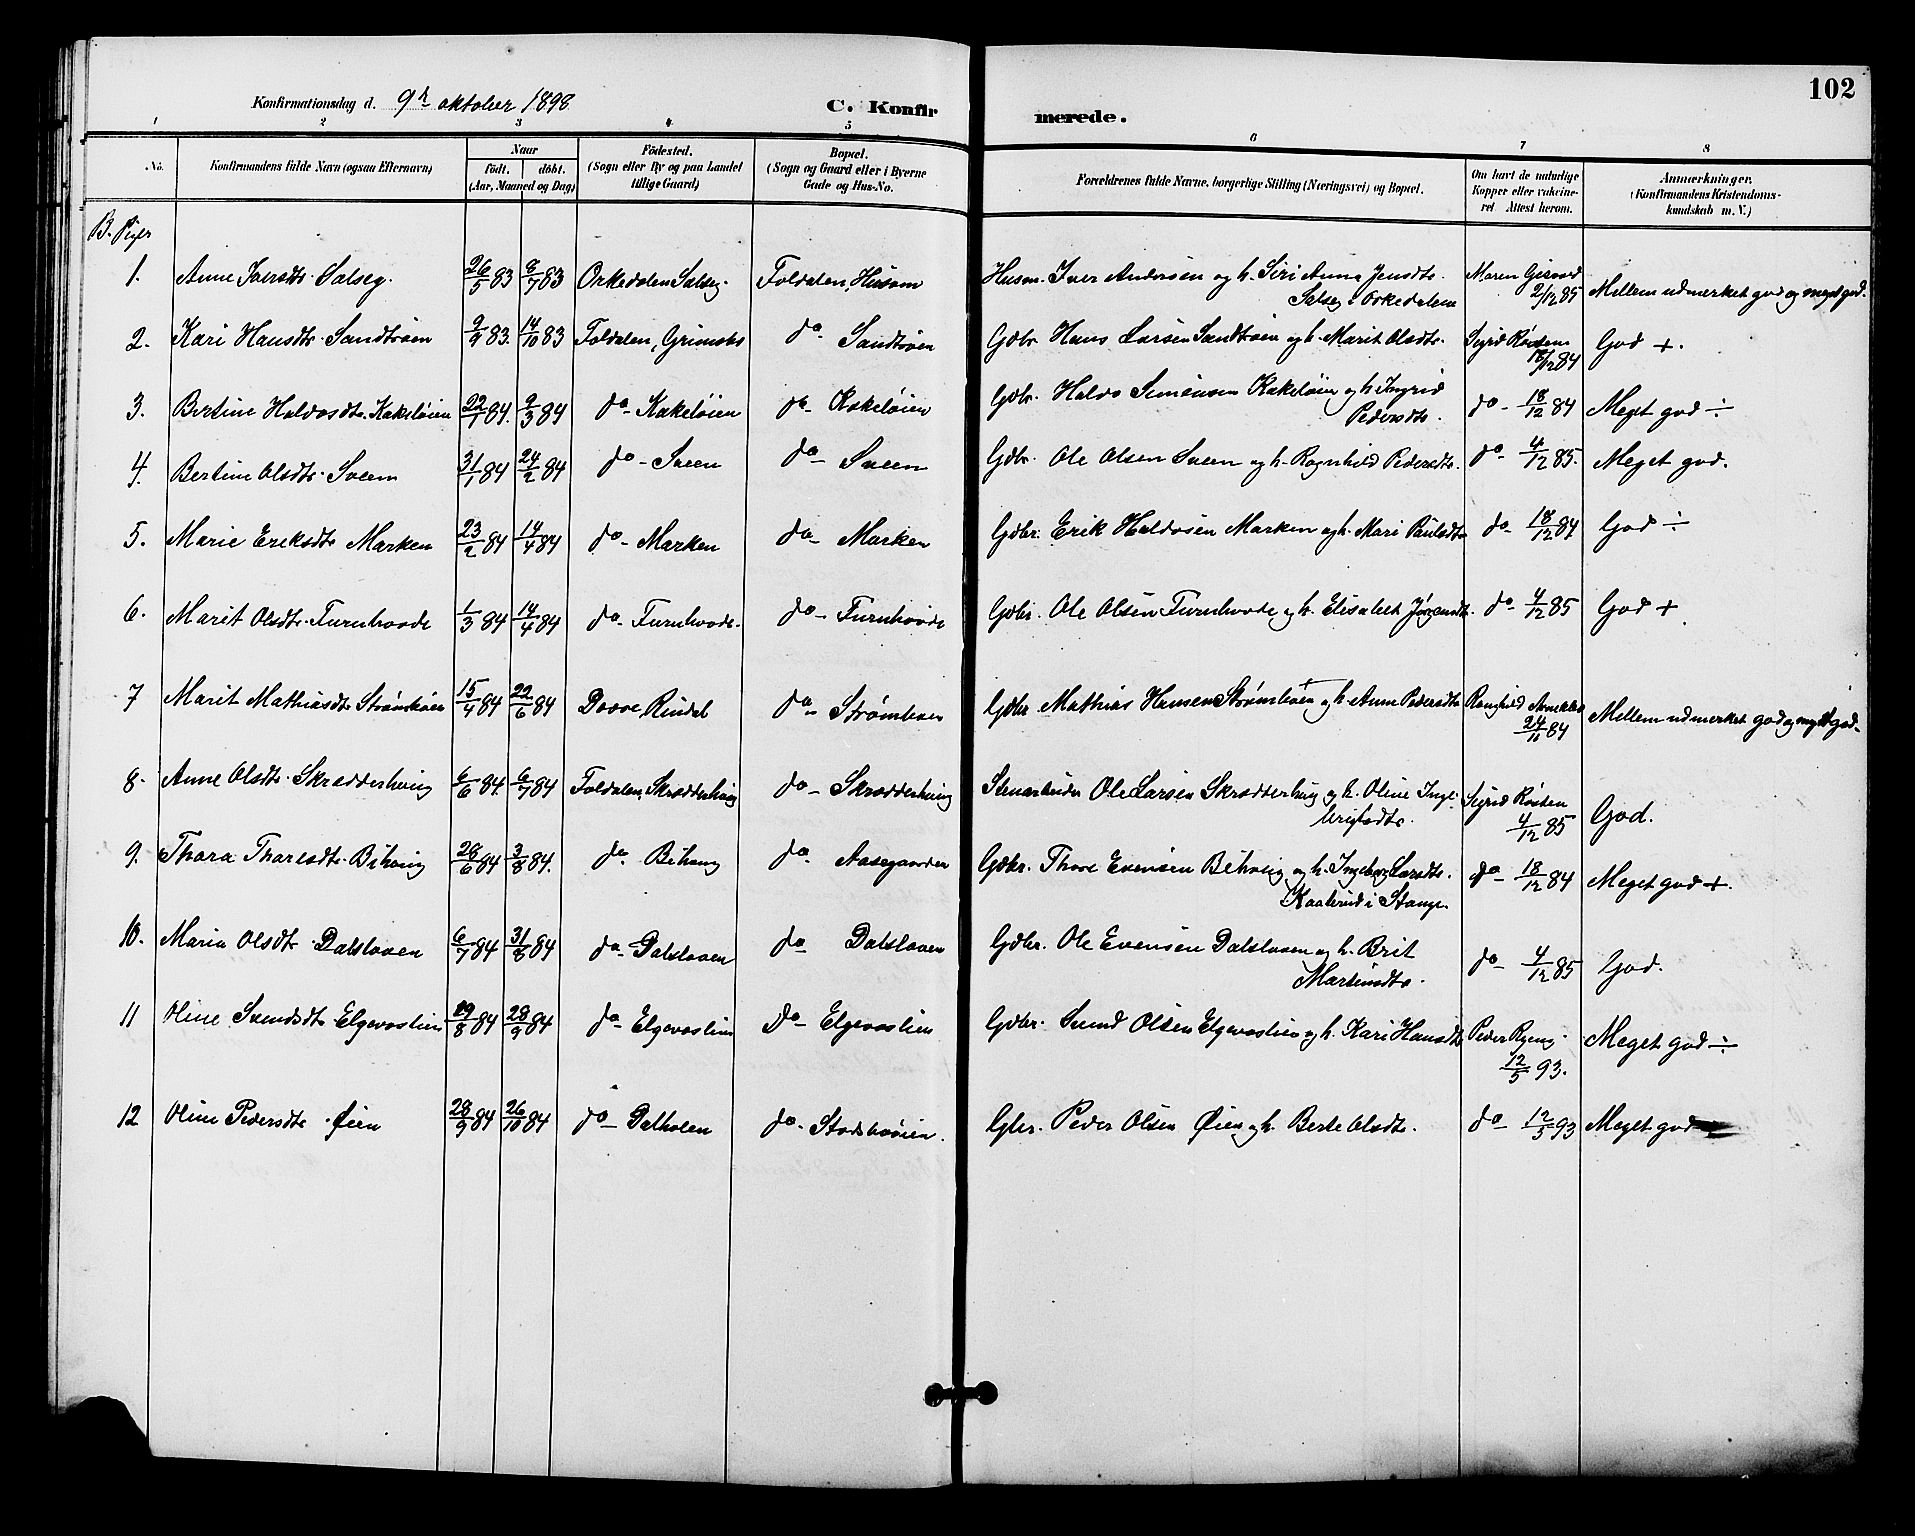 102
Konfirmationsdag d. 9de oktober 1898
C. Konfirmerede.
1 2 3 4 5 6 7 8
No. Konfirmandens fulde Navn (ogsaa Efternavn) Naar födt. döbt. (Aar, Maaned og Dag) Födested. (Sogn eller By og paa Landet tillige Gaard) Bopæl. (Sogn og Gaard eller i Byerne Gade og Hus-No. Forældrenes fulde Navne, borgerlige Stilling (Næringsvei) og Bopæl. Om havt de naturlige Kopper eller vakcineret Attest herom. Anmærkninger. (Konfirmandens Kristendomskundskab m. V.)
B. Piger
1. Anne Iversdtr. Salseg. 26/5 83 8/7 83 Orkedalen Salseg. Foldalen, Husom Husm. Iver Andersen og h. Siri Anna Jensdtr. Salseg i Orkedalen Maren 2/12 85 Mellem udmerket god og meget god.
2. Kari Hansdtr. Sandtrøen 9/9 83. 14/10 83 Foldalen, Grimsbo do Sandtrøen Gdbr. Hans Larsen Sandtrøen og h. Marit Olsdtr. Sigrid Røsten 18/12 84 God +.
3. Bertine Halvosdtr. Kakeløien 22/1 84. 9/3 84 do- Kakeløien do Kakeløien Gdbr. Halvo Simensen Kakeløien og h. Ingrid Pedersdtr. do- 18/12 84 Meget god ÷
4. Bertine Olsdtr. Sveen 31/1 84 24/2 84 do- Sveen do- Sveen Gdbr. Ole Olsen Sveen og h. Ragnhild Pedersdtr. do- 4/12 85. Meget god.
5. Marie Eriksdtr Marken 23/2 84 14/4 84 do- Marken do- Marken Gdbr. Erik Halvosen Marken og h. Mari Paulsdtr do- 18/12 84 God ÷
6. Marit Olsdtr. Furuhovde 1/3 84 14/4 84 do- Furuhovde. do- Furuhovde Gdbr. Ole Olsen Furuhovde og h. Elisabet do- 4/12 85 God +
7 Marit Mathiasdtr Strømhoien 15/4 84 22/6 84 Dovre Rindal do- Strømhoien Gdbr Mathias Hansen Strømhoien + og h. Anne Pedersdtr 24/11 84 Mellem udmerket god og meget god.
8. Anne Olsdtr. Skrædderhaug 6/6 84. 6/7 84 Foldalen, Skrædderhaug do- Skrædderhaug Stenarbeider Ole Larsen Skrædderhaug og h. Oline Ingebrigtsdtr. Sigrid Røsten 4/12 85 God.
9. Thora Tharesdtr. Bihaug 28/6 84 3/8 84. do Bihaug do Aasegaarden Gdbr. Thore Evensen Bihaug og h. Ingeborg Larsdtr. Kaalerud i Stange. do- 18/12 84 Meget god +.
10. Maria Olsdtr. Dalslaaen 6/7 84 31/8 84 do- Dalslaaen do Dalslaaen Gdbr. Ole Evensen Dalslaaen og h. Brit Martinsdtr. do- 4/12 85 God.
11 Oline Svendsdtr. Elgevaslien 29/8 84 28/9 84 do- Elgevaslien do- Elgevaslien Gdbr. Svend Olsen Elgevaslien og h. Kari Hansdtr Peder Ryeng. 12/5 93. Meget god ÷
12 Oline Pedersdtr. Øien 28/9 84 26/10 84 do- Dalholen do. Gbr. Peder Olsen Øien og h. Berte Olsdtr. do- 12/5 93 Meget god